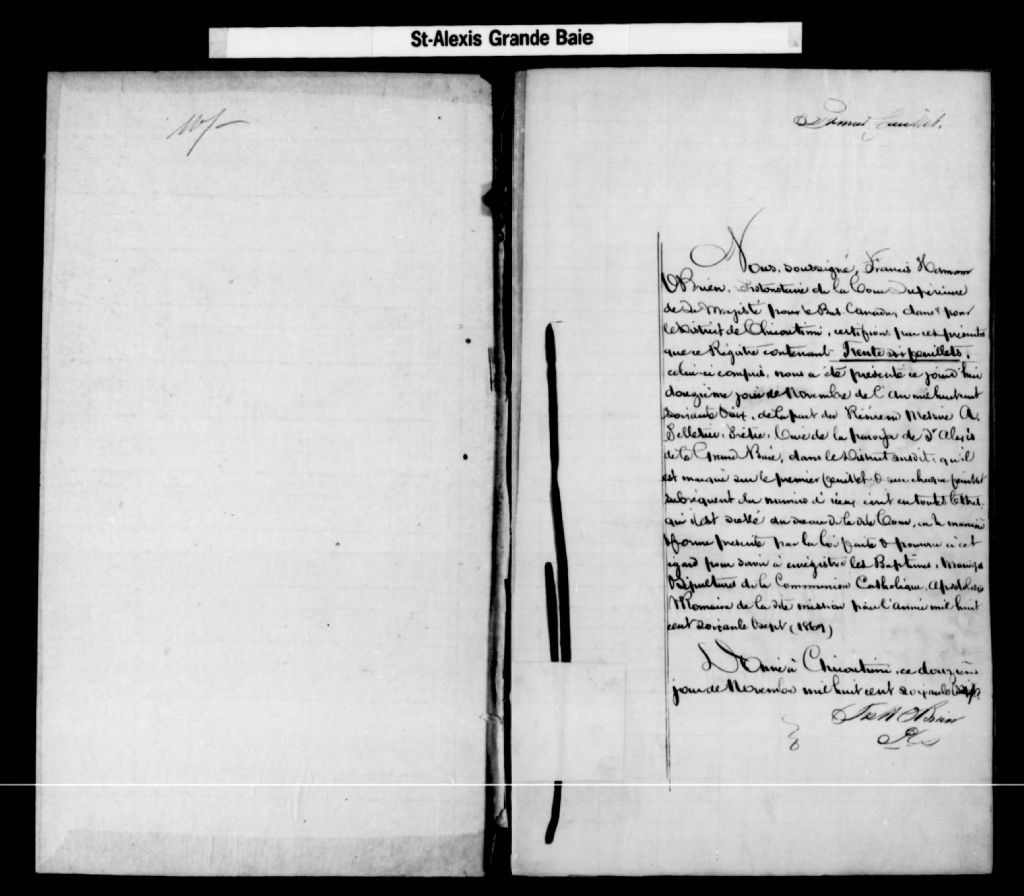 St-Alexis Grande Baie
Premier feuillet.
Nous, soussigné, Francis Harmon
O'Brien, Protonotaire de la Cour Supérieure
de Sa Majesté pour le Bas Canada, dans & pour
le District de Chicoutimi, certifions par ces présentes
que ce Régistre contenant Trente six feuillets,
celui-ci compris, nous a été présenté ce jourd'hui
douzième jour de Novembre de l'an mil huit cent
soixante & six, de la part du Révérend Messire A.
Pelletier, Prêtre, Curé de la paroisse de St Alexis
de la Grand Baie, dans le District susdit; qu'il
est marqué sur le premier feuillet & sur chaque feuillet
subséquent du numéro d'iceux écrit en toutes lettres
qu'il est scellé du sceau de la dite Cour, en la manière
& forme prescrite par la loi faite & pourvue à cet
égard pour servir à enrégistrer les Baptêmes, Mariages
& Sépultures de la Communion Catholique, Apostolique
& Romaine de la dite mission pour l'année mil huit
cent soixante & sept (1867)
Donné à Chicoutimi, ce douzième
jour de Novembre mil huit cent soixante & six.
O'Brien